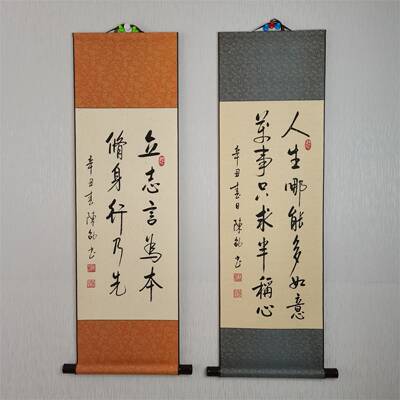 立志言為本
脩身行乃先
辛丑春陳书
人生哪能多如意
萬事只求半稱心
辛丑春日陳书